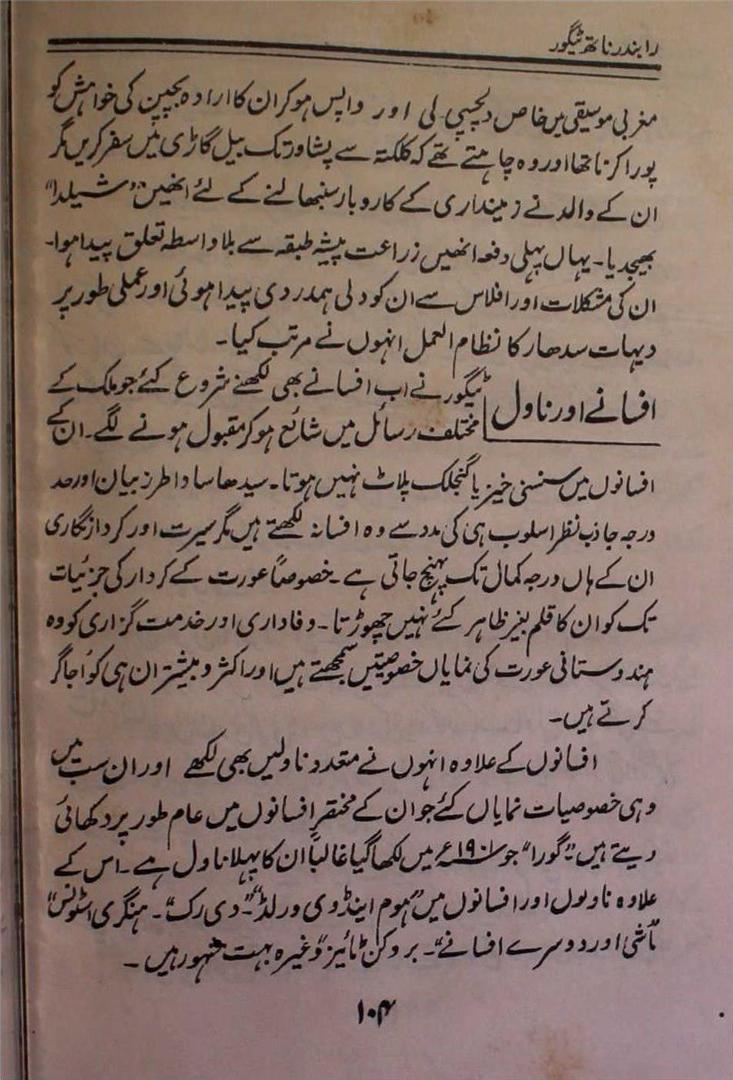 رابندر ناتھ ٹیگور
مغربی موسیقی میں خاص دلچسپی لی اور واپس ہوکر ان کا ارادہ بچپن کی خواہش کو
پورا کرنا تھا اور وہ چاہتے تھے کہ کلکتہ سے پشاور تک بیل گاڑی میں سفر کریں مگر
ان کے والد نے زمینداری کے کاروبار سنبھالنے کے لئے انھیں "شیلدا"
بھیجدیا۔ یہاں پہلی دفعہ انھیں زراعت پیشہ طبقہ سے بلا واسطہ تعلق پیدا ہوا۔
ان کی مشکلات اور افلاس سے ان کو دلی ہمدردی پیدا ہوئی اور عملی طور پر
دیہات سدھار کا نظام العمل انہوں نے مرتب کیا۔
افسانے اور ناول
ٹیگور نے اب افسانے بھی لکھنے شروع کئے جو ملک کے
مختلف رسائل میں شائع ہوکر مقبول ہونے لگے۔ ان کے
افسانوں میں سنسنی خیز یا گنجلک پلاٹ نہیں ہوتا۔ سیدھا سادا طرز بیان اور حد
درجہ جاذب نظر اسلوب ہی کی مدد سے وہ افسانہ لکھتے ہیں مگر سیرت اور کردار نگاری
ان کے ہاں درجہ کمال تک پہنچ جاتی ہے۔ خصوصاً عورت کے کردار کی جزئیات
تک کو ان کا قلم بغیر ظاہر کئے نہیں چھوڑتا۔ وفاداری اور خدمت گزاری کو وہ
ہندوستانی عورت کی نمایاں خصوصیتیں سمجھتے ہیں اور اکثر و بیشتر ان ہی کو اُجاگر
کرتے ہیں۔
افسانوں کے علاوہ انہوں نے متعدد ناولیں بھی لکھے اور ان سب میں
وہی خصوصیات نمایاں کئے جو ان کے مختصر افسانوں میں عام طور پر دکھائی
دیتے ہیں۔ "گورا" جو ۱۹۰۱ء میں لکھا گیا غالباً ان کا پہلا ناول ہے۔ اس کے
علاوہ ناولوں اور افسانوں میں "ہوم اینڈ دی ورلڈ"۔ "دی رک"۔ ہنگری اسٹونس"
ماشی اور دوسرے افسانے"۔ بروکن ٹائیز" وغیرہ بہت مشہور ہیں۔
۱۰۴